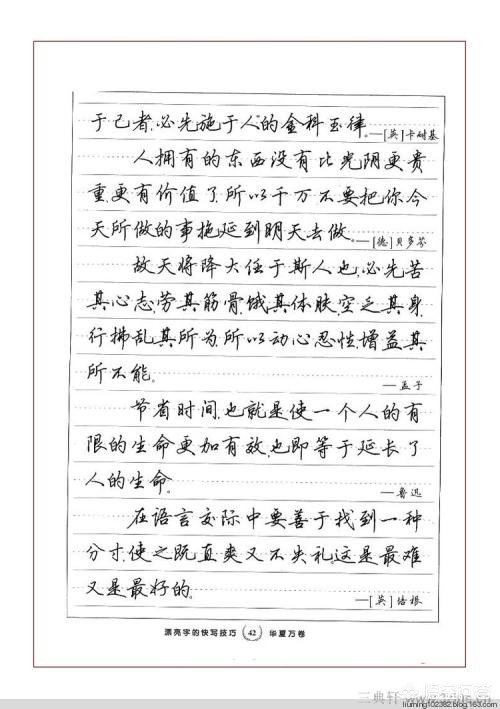 于己者,必先施于人”的金科玉律。—[英]卡耐基
人拥有的东西没有比光阴更贵
重、更有价值了,所以千万不要把你今
天所做的事拖延到明天去做。—[德]贝多芬
故天将降大任于斯人也,必先苦
其心志,劳其筋骨,饿其体肤,空乏其身,
行拂乱其所为,所以动心忍性,增益其
所不能。
—孟子
节省时间,也就是使一个人的有
限的生命更加有效,也即等于延长了
人的生命。
—鲁迅
在语言交际中要善于找到一种
分寸,使之既直爽又不失礼。这是最难
又是最好的。
—[英]培根
漂亮字的快写技巧 42 华夏万卷
三典轩
liuming102382.blog.163.com